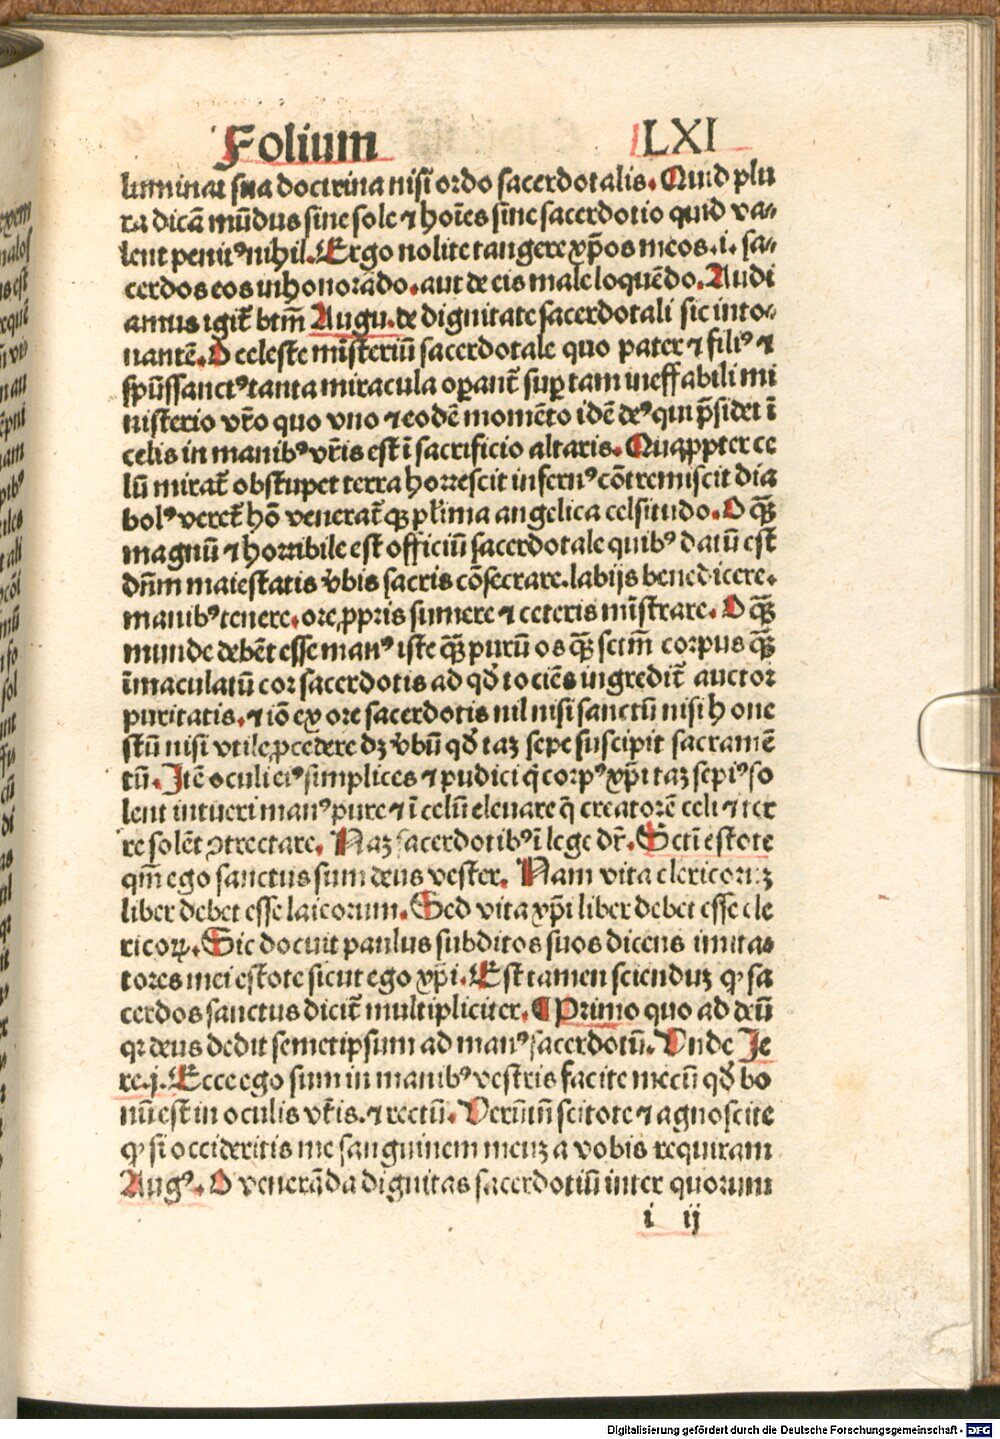 Folium LXI
luminat sua doctrina nisi ordo sacerdotalis. Quid plu
ra dicā mūdus sine sole ⁊ hoīes sine sacerdotio quid va⸗
lent penitꝰ nihil. Ergo nolite tangere xp̄os meos .i. sa⸗
cerdos eos inhonorādo. aut de eis male loquēdo. Audi
amus igit̄ btm̄ Augu. de dignitate sacerdotali sic into⸗
nantē. O celeste misteriū sacerdotale quo pater ⁊ filiꝰ ⁊
sp̄ussanctꝰ tanta miracula oꝑant̄ suꝑ tam ineffabili mi
nisterio vr̄o quo vno ⁊ eodē momēto idē deꝰ qui p̄sidet ī
celis in manibꝰ vr̄is est ī sacrificio altaris. Quaꝓpter ce
lū mirat̄ obstupet terra horrescit infernꝰ cōtremiscit dia
bolꝰ veret̄ hō venerat̄ qꝫ pl̄ima angelica celsitudo. O qꝫ̄
magnū ⁊ horribile est officiū sacerdotale quibꝰ datū est
dn̄m maiestatis v̄bis sacris cōsecrare. labijs benedicere.
manibꝰ tenere. ore ꝓpris sumere ⁊ ceteris mīstrare. O qꝫ̄
munde debēt esse manꝰ iste qꝫ̄ purū os qꝫ̄ sctm̄ corpus qꝫ̄
īmaculatū cor sacerdotis ad qd̄ tociēs ingredit̄ auctor
puritatis. ⁊ iō ex ore sacerdotis nil nisi sanctū nisi hone
stū nisi vtile ꝓcedere dꝫ v̄bū qd̄ taꝫ sepe suscipit sacramē
tū. Itē oculi eiꝰ simplices ⁊ pudici q̇ corpꝰ xp̄i taꝫ sepiꝰ so
lent intueri manꝰ pure ⁊ ī celū eleuare q̄ creatorē celi ⁊ ter
re solēt ꝯtrectare. Naꝫ sacerdotibꝰ ī lege dr̄. Scti estote
qm̄ ego sanctus sum deus vester. Nam vita clericoruꝫ
liber debet esse laicorum. Sed vita xp̄i liber debet esse cle
ricoꝝ. Sic docuit paulus subditos suos dicens imita⸗
tores mei estote sicut ego xp̄i. Est tamen scienduꝫ ꝙ sa
cerdos sanctus dicit̄ multipliciter. ¶ Primo quo ad deū
qꝛ deus dedit semetipsum ad manꝰ sacerdotū. Vnde Je
re.j. Ecce ego sum in manibꝰ vestris facite mecū qd̄ bo
nū est in oculis vr̄is. ⁊ rectū. Verūtn̄ scitote ⁊ agnoscite
ꝙ si occideritis me sanguinem meuꝫ a vobis requiram
Augꝰ. O venerāda dignitas sacerdotiū inter quorum
i ij
Digitalisierung gefördert durch die Deutsche Forschungsgemeinschaft - DFG